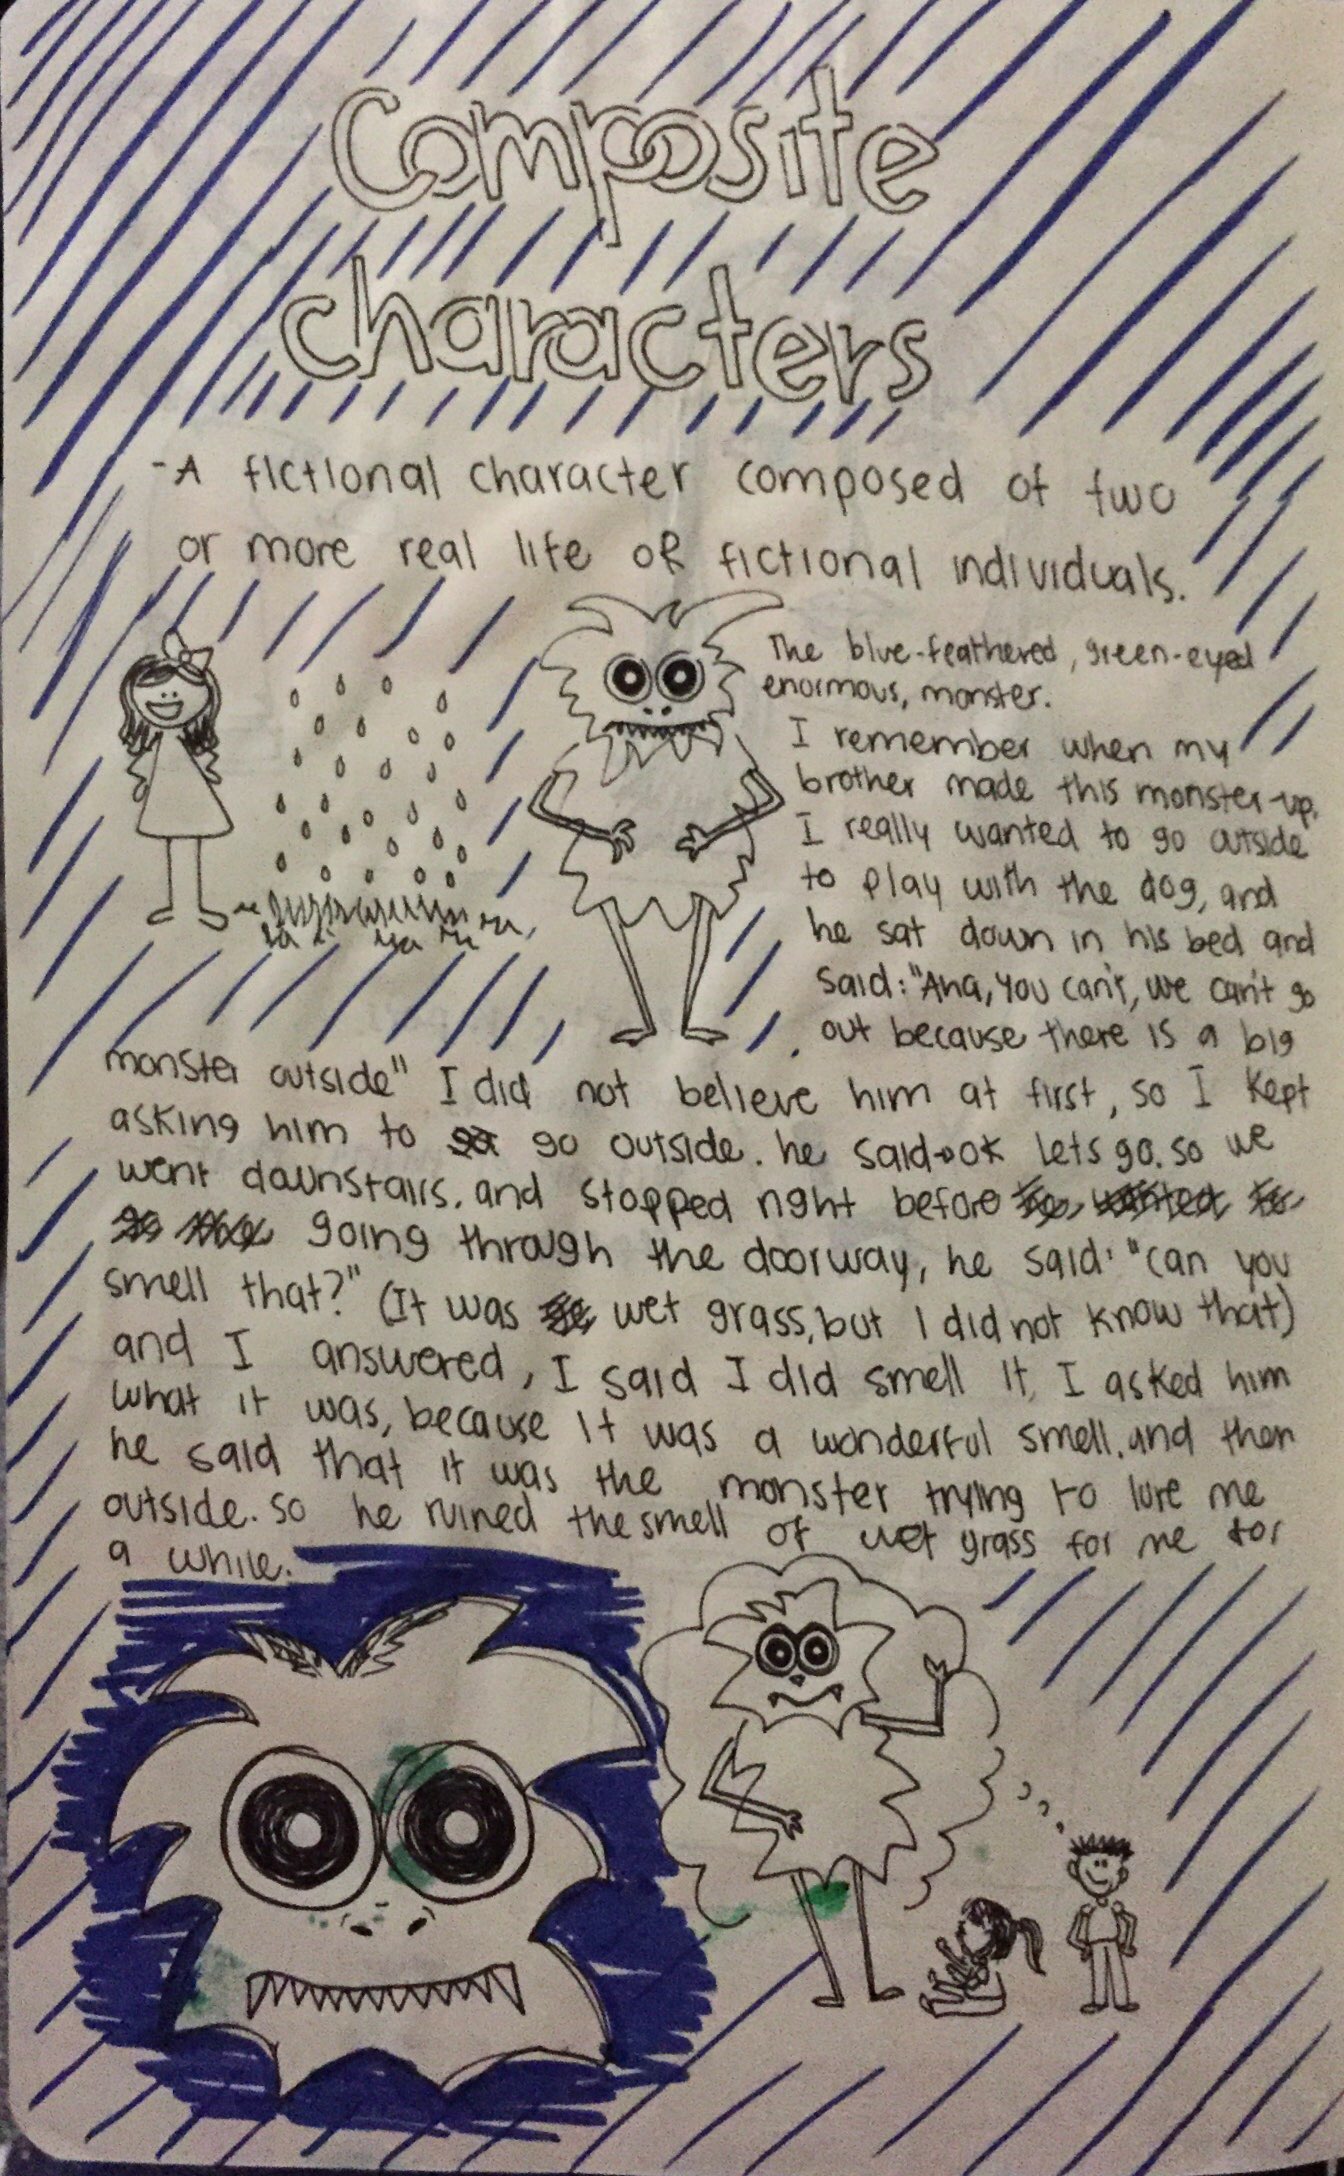 Composite
characters
-A fictional character composed of two
or more real life or fictional individuals.
The blue-feathered, green-eyed
enormous, monster.
I remember when my
brother made this monster-up.
I really wanted to go outside
to play with the dog, and
he sat down in his bed and
said: "Aha, you can't, we can't go
out because there is a big
monster outside" I did not believe him at first, so I kept
asking him to go outside. he said→ok lets go. so we
went downstairs. and stopped right before
going through the doorway, he said: "can you
smell that?" (It was wet grass, but I did not know that)
and I answered, I said I did smell it, I asked him
what it was, because it was a wonderful smell. and then
he said that it was the monster trying to lure me
outside. so he ruined the smell of wet grass for me for
a while.